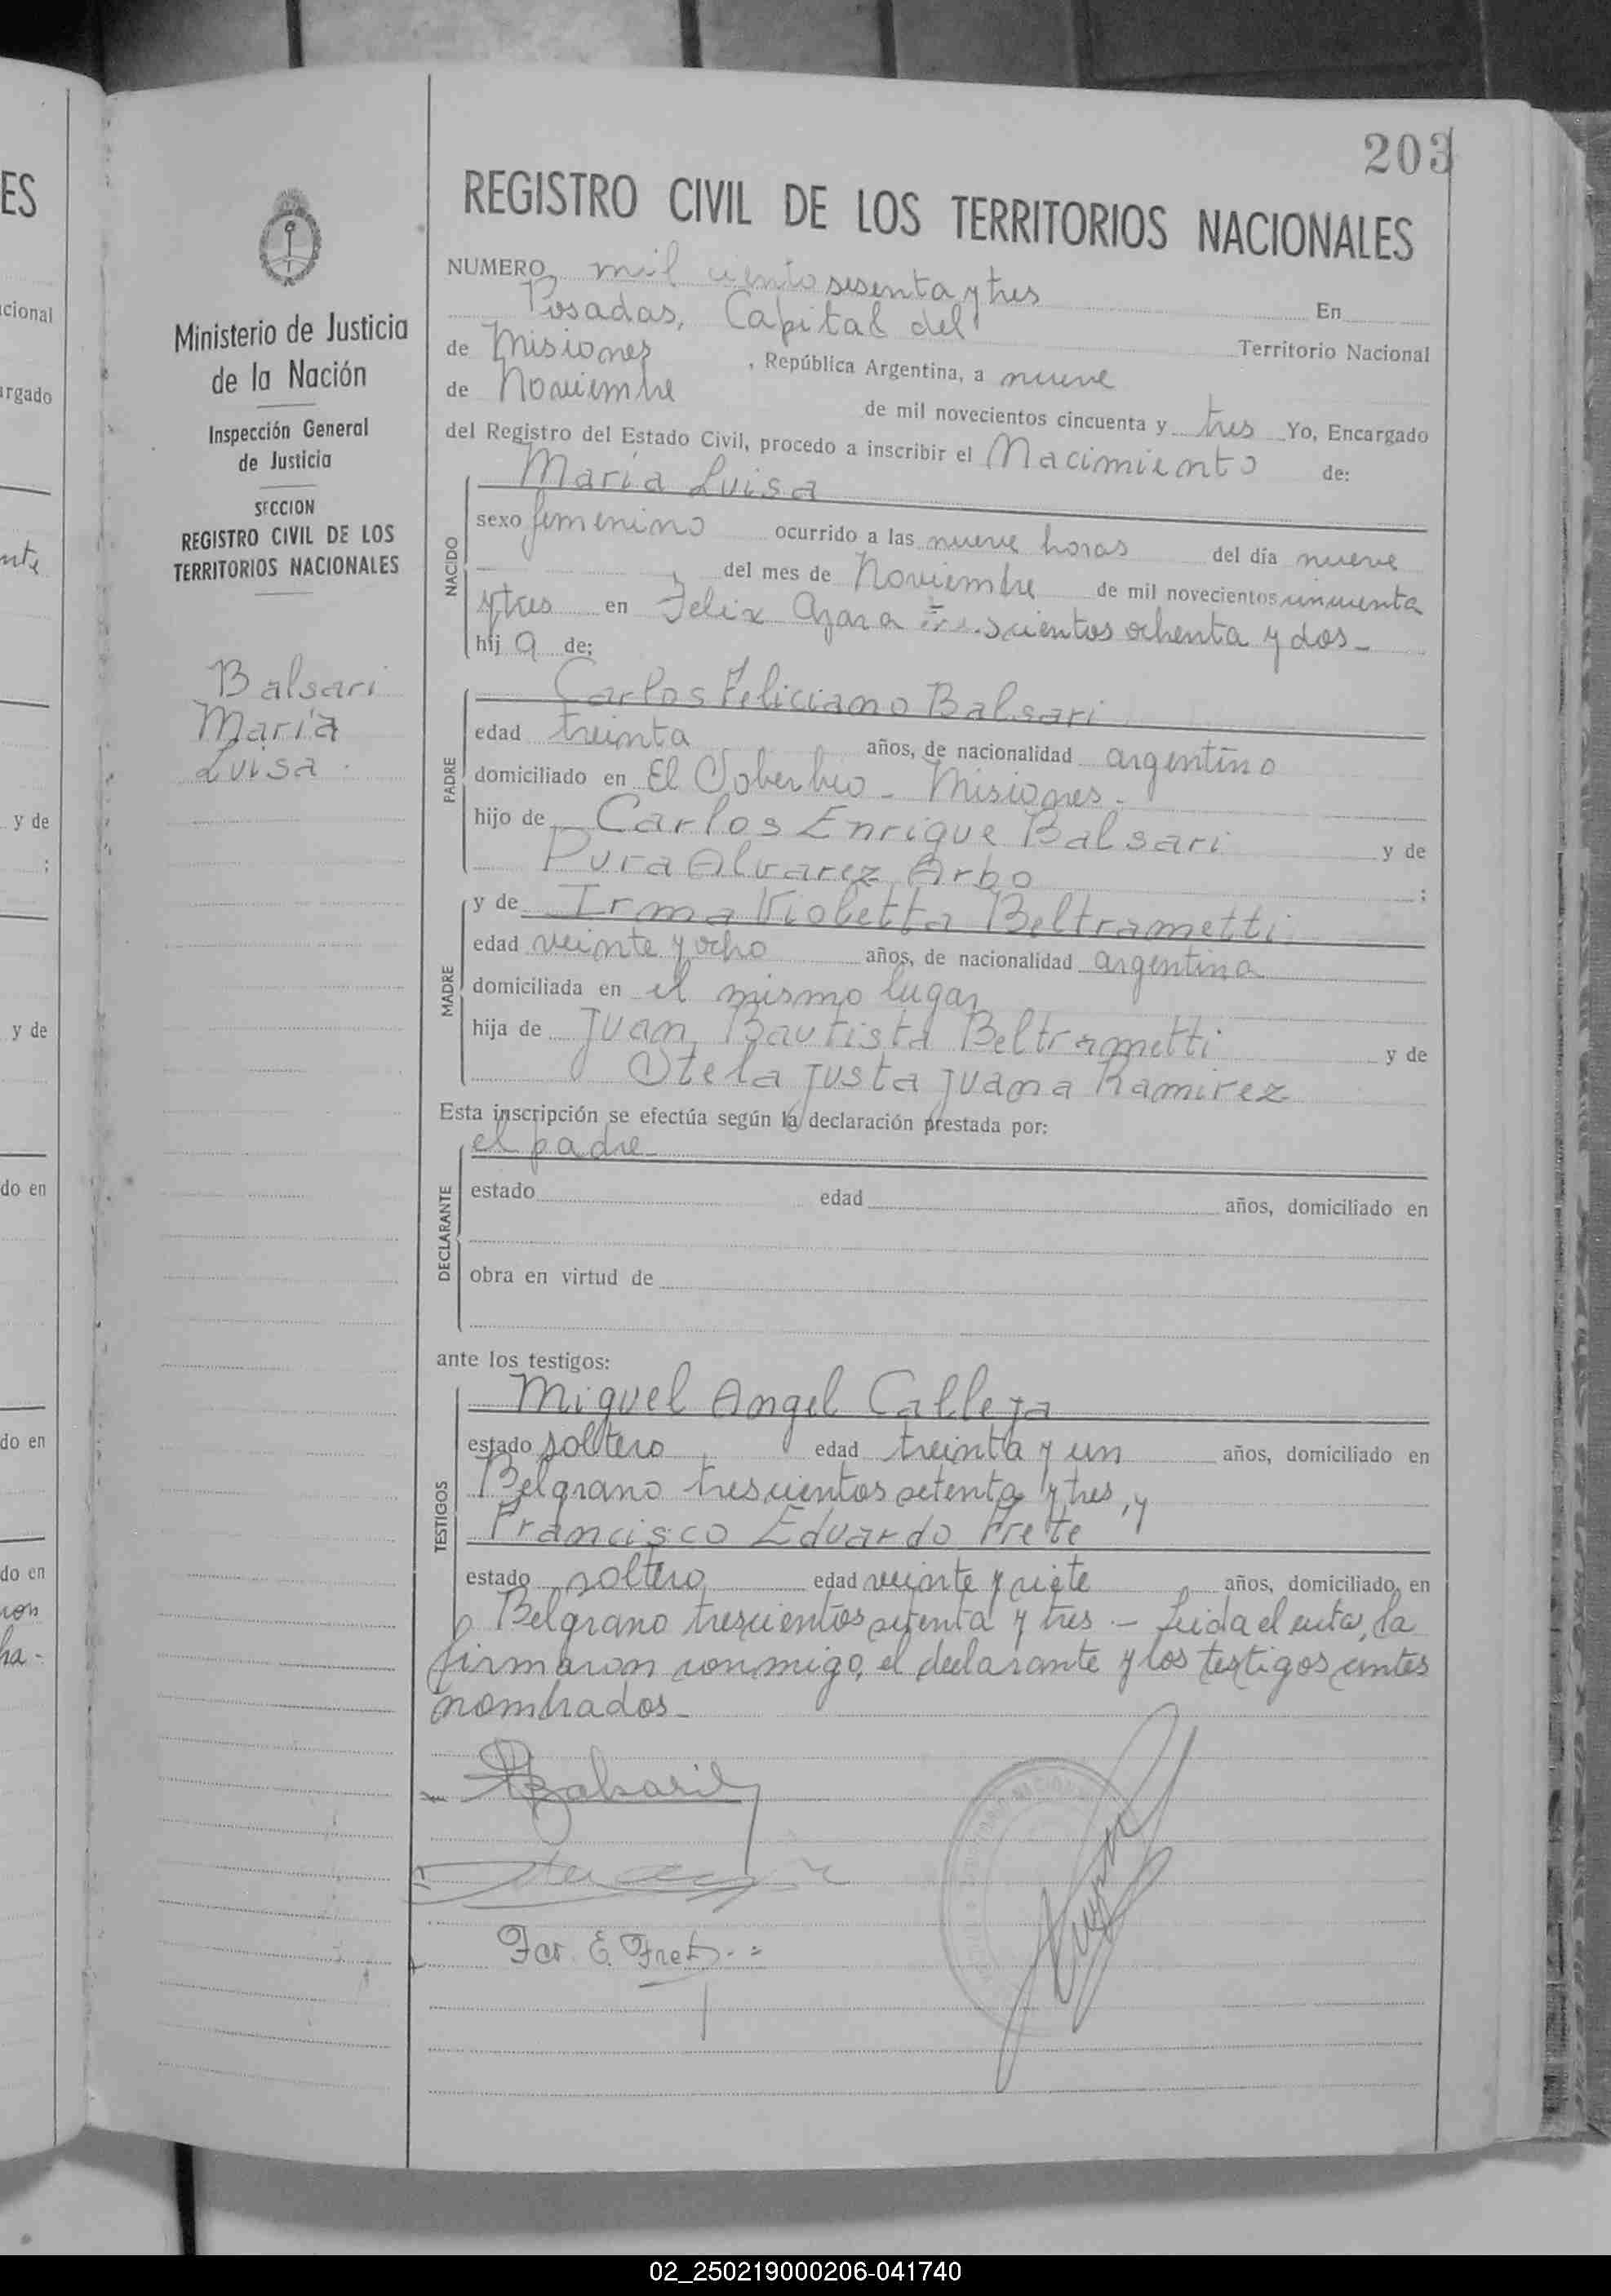 203
REGISTRO CIVIL DE LOS TERRITORIOS NACIONALES
NUMERO mil ciento sesenta y tres En
Posadas, Capital del Territorio Nacional
de Misiones, República Argentina, a nueve
de Noviembre de mil novecientos cincuenta y tres Yo, Encargado
del Registro del Estado Civil, procedo a inscribir el Nacimiento de:
NACIDO
María Luisa
sexo femenino ocurrido a las nueve horas del día nueve
del mes de Noviembre de mil novecientos cincuenta
y tres en Felix Azara trescientos ochenta y dos-
hij a de:
PADRE
Carlos Feliciano Balsari
edad treinta años, de nacionalidad argentino
domiciliado en El Soberbio - Misiones-
hijo de Carlos Enrique Balsari y de
Pura Alvarez Arbo ;
MADRE
y de Irma Violetta Beltrametti
edad veinte y ocho años, de nacionalidad argentina
domiciliada en el mismo lugar
hija de Juan Bautista Beltrametti y de
Otela Justa Juana Ramirez
Esta inscripción se efectúa según la declaración prestada por:
DECLARANTE
el padre-
estado edad años, domiciliado en
obra en virtud de
ante los testigos:
TESTIGOS
Miguel Angel Calleja
estado soltero edad treinta y un años, domiciliado en
Belgrano trescientos setenta y tres, y
Francisco Eduardo Frete
estado soltero edad veinte y siete años, domiciliado en
Belgrano trescientos setenta y tres - Leida el acta, la
firmaron conmigo, el declarante y los testigos antes
nombrados-
Balsari
Fco. E. Frete
Ministerio de Justicia
de la Nación
Inspección General
de Justicia
SECCION
REGISTRO CIVIL DE LOS
TERRITORIOS NACIONALES
Balsari
María
Luisa.
ES
cional
argado
y de
;
y de
do en
do en
do en
02_250219000206-041740